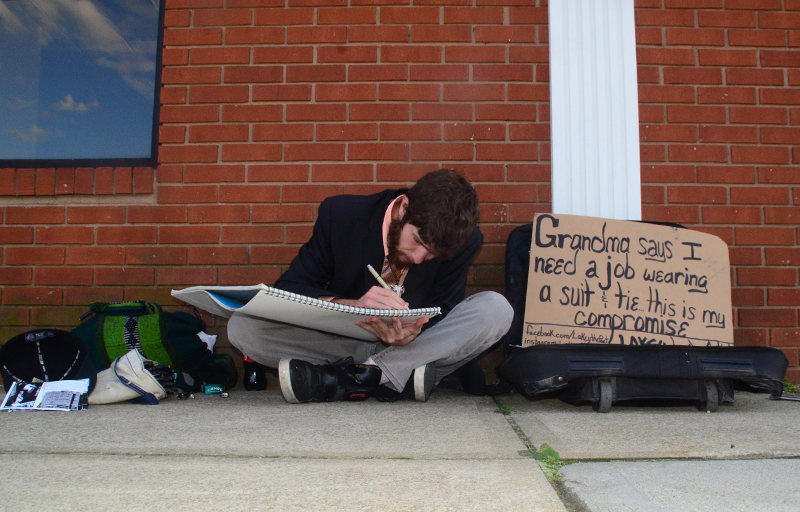 Grandma says I
need a job wearing
a suit & tie this is my
compromise
facebook.com/LoKyTheArt